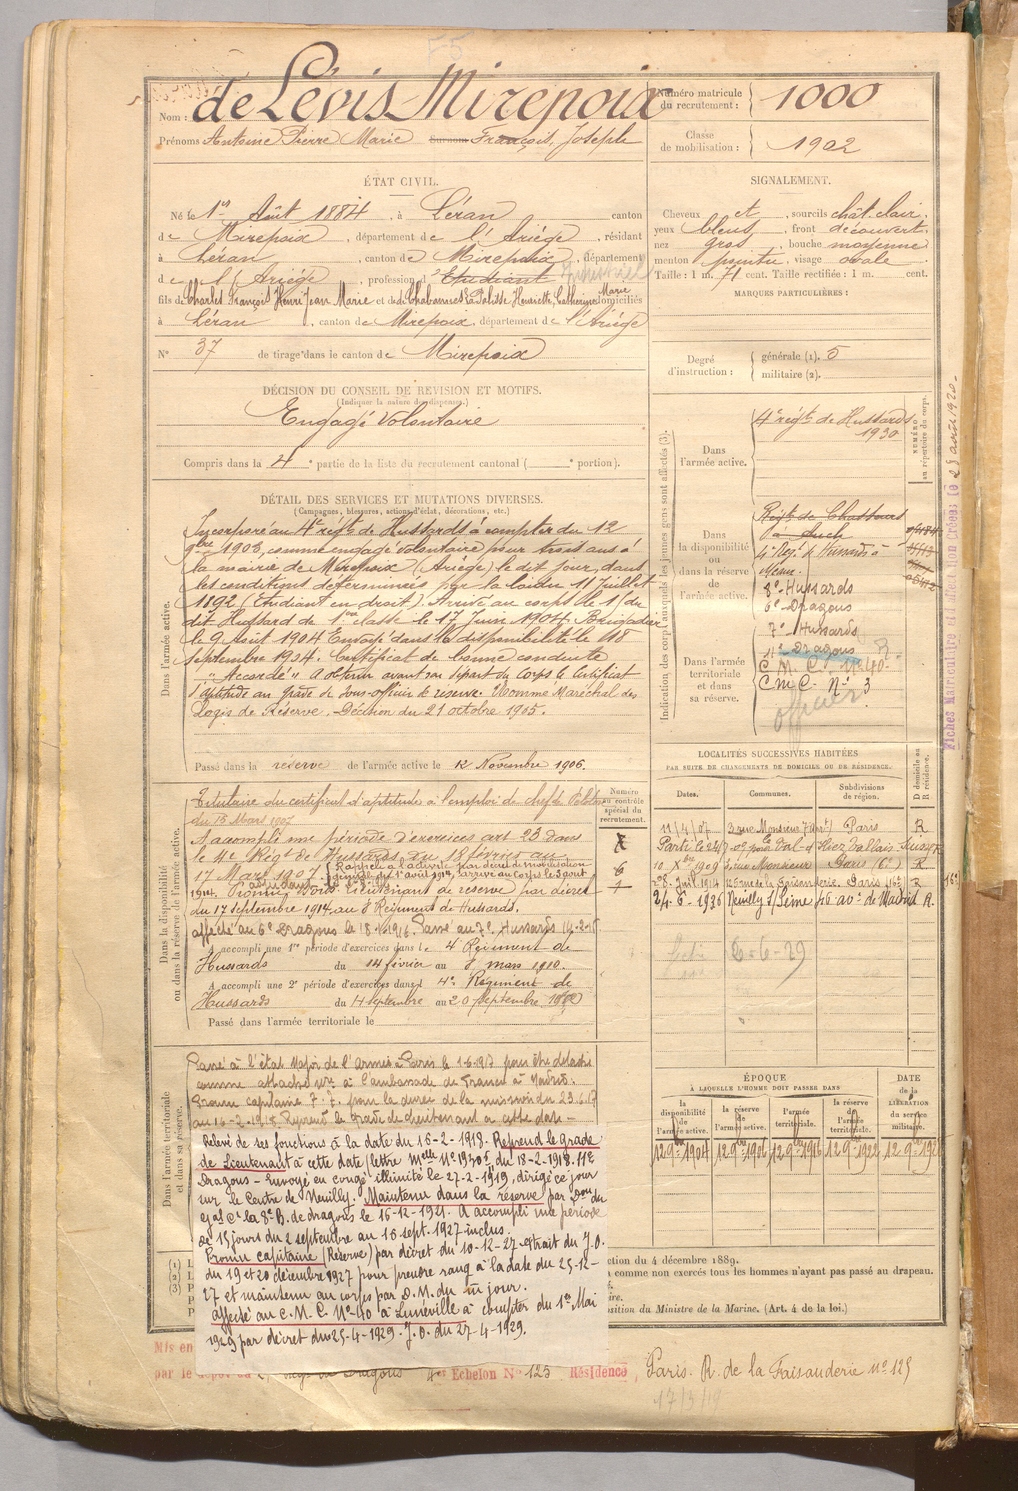 Nom : de Lévis Mirepoix
Prénoms Antoine Pierre Marie Surnom François, Joseph
Numéro matricule du recrutement : 1000
Classe de mobilisation : 1902
ÉTAT CIVIL.
Né le 1er Août 1884, à Léran canton
de Mirepoix, département de l'Ariége, résidant
à Léran, canton de Mirepoix, département
de l'Ariége, profession d'Etudiant
fils de Charles François Henri Jean Marie et de de Chabannes La Palisse Henriette, Catherine Marie domiciliés
à Léran, canton de Mirepoix, département de l'Ariége
N° 37 de tirage dans le canton de Mirepoix
SIGNALEMENT.
Cheveux et, sourcils chât. clair,
yeux bleus, front découvert,
nez gros, bouche moyenne
menton pointu, visage ovale
Taille : 1 m. 71 cent. Taille rectifiée : 1 m. cent.
MARQUES PARTICULIÈRES :
Degré d'instruction : générale (1). 5
militaire (2).
DÉCISION DU CONSEIL DE REVISION ET MOTIFS.
(Indiquer la nature des dispenses.)
Engagé Volontaire
Compris dans la 4e partie de la liste du recrutement cantonal ( e portion).
DÉTAIL DES SERVICES ET MUTATIONS DIVERSES.
(Campagnes, blessures, actions d'éclat, décorations, etc.)
Dans l'armée active.
Incorporé au 4e régt de Hussards à compter du 12
9bre 1903, comme engagé volontaire pour trois ans à
la mairie de Mirepoix (Ariége) le dit jour, dans
les conditions déterminées par la loi du 11 Juillet
1892 (Etudiant en droit). Arrivé au corps le 15 du
dit Hussard de 1ère classe le 17 Juin 1904. Brigadier
le 9 Août 1904 Envoyé dans la disponibilité le 18
Septembre 1904. Certificat de bonne conduite
"Accordé" A obtenu avant son départ du corps le certificat
d'aptitude au grade de sous-officier de réserve. Nommé Maréchal des
Logis de Réserve. Décision du 21 octobre 1905.
Passé dans la réserve de l'armée active le 12 Novembre 1906.
Indication des corps auxquels les jeunes gens sont affectés (3).
NUMÉRO au répertoire du corps.
Dans l'armée active.
4e régt de Hussards
1930
Dans la disponibilité ou dans la réserve de l'armée active.
Régt de Chasseurs
à Auch
4e Regt de Hussards à
Meaux.
8e Hussards
6e Dragons
7e Hussards
Dans l'armée territoriale et dans sa réserve.
11e Dragons
C.M.C. N° 40
C M C. N° 3
officier
Fiches Matriculaires d'Affectation Créées le 25 août 1920
Dans la disponibilité ou dans la réserve de l'armée active.
Numéro au contrôle spécial du recrutement.
Titulaire du certificat d'aptitude à l'emploi de chef de Peloton
du 13 Mars 1907
A accompli une période d'exercices art 23 dans
le 4e Régt de Hussards du 18 février au
17 Mars 1907. Rappelé à l'activité par décret de mobilisation
générale du 1er août 1914, arrivé au Corps le 3 août
1914. Promu Sous-Lieutenant de réserve par décret
du 17 septembre 1914. au 8 Régiment de Hussards.
affecté au 6e Dragons le 18. Passé au 7e Hussards
A accompli une 1re période d'exercices dans le 4 Régiment de
Hussards du 14 février au 8 mars 1910.
A accompli une 2e période d'exercices dans l 4e Régiment de
Hussards du 4 septembre au 20 septembre
Passé dans l'armée territoriale le
LOCALITÉS SUCCESSIVES HABITÉES
PAR SUITE DE CHANGEMENTS DE DOMICILE OU DE RÉSIDENCE.
Dates. Communes. Subdivisions de région. D domicile ou R résidence.
11/4/07 3 rue Monsieur Paris R
10 Xbre 1909 3 rue Monsieur Paris (6e) R
28 Juil. 1914 125 rue de la Faisanderie. Paris 16e R
24. 6. 1936 Neuilly s/Seine 46 av. de Madrid R.
2-6-29
Dans l'armée territoriale et dans sa réserve.
Passé à l'état Major de l'armée à Paris le 1-6-1917 pour être détaché
comme attaché mre à l'ambassade de France à Madrid.
Promu capitaine T. T. pour la durée de la mission du 23.6.17
au 16-2-1918. Reprend le grade de lieutenant à cette date -
Relevé de ses fonctions à la date du 16-2-1918. Reprend le grade
de Lieutenant à cette date (lettre Mlle N° 1930, du 18-2-1918. 11e
Dragons - Envoyé en congé illimité le 27-2-1919, dirigé ce jour
sur le Centre de Neuilly. Maintenu dans la réserve par Don du
gal Ct la 8e B. de dragons le 16-12-1921. A accompli une période
de 15 jours du 2 septembre au 16 sept. 1927 inclus.
Promu capitaine (Réserve) par décret du 10-12-27 extrait du J.O.
du 19 et 20 décembre 1927 pour prendre rang à la date du 25-12-
27 et maintenu au corps par D.M. du m jour.
Affecté au C.M.C. N° 40 à Lunéville à compter du 1er Mai
1929 par décret du 25-4-1929. J.O. du 27-4-1929.
ÉPOQUE
À LAQUELLE L'HOMME DOIT PASSER DANS
la disponibilité de l'armée active. la réserve de l'armée active. l'armée territoriale. la réserve de l'armée territoriale.
DATE de la LIBÉRATION du service militaire.
12 9bre 1904 12 9bre 1906 12 9bre 1916 12 9bre 1922 12 9bre 1928
ction du 4 décembre 1889.
comme non exercés tous les hommes n'ayant pas passé au drapeau.
ire.
osition du Ministre de la Marine. (Art. 4 de la loi.)
Mis en
par le dépôt du Dragons Echelon N° 123 Résidence Paris. R. de la Faisanderie N° 125
17/3/19